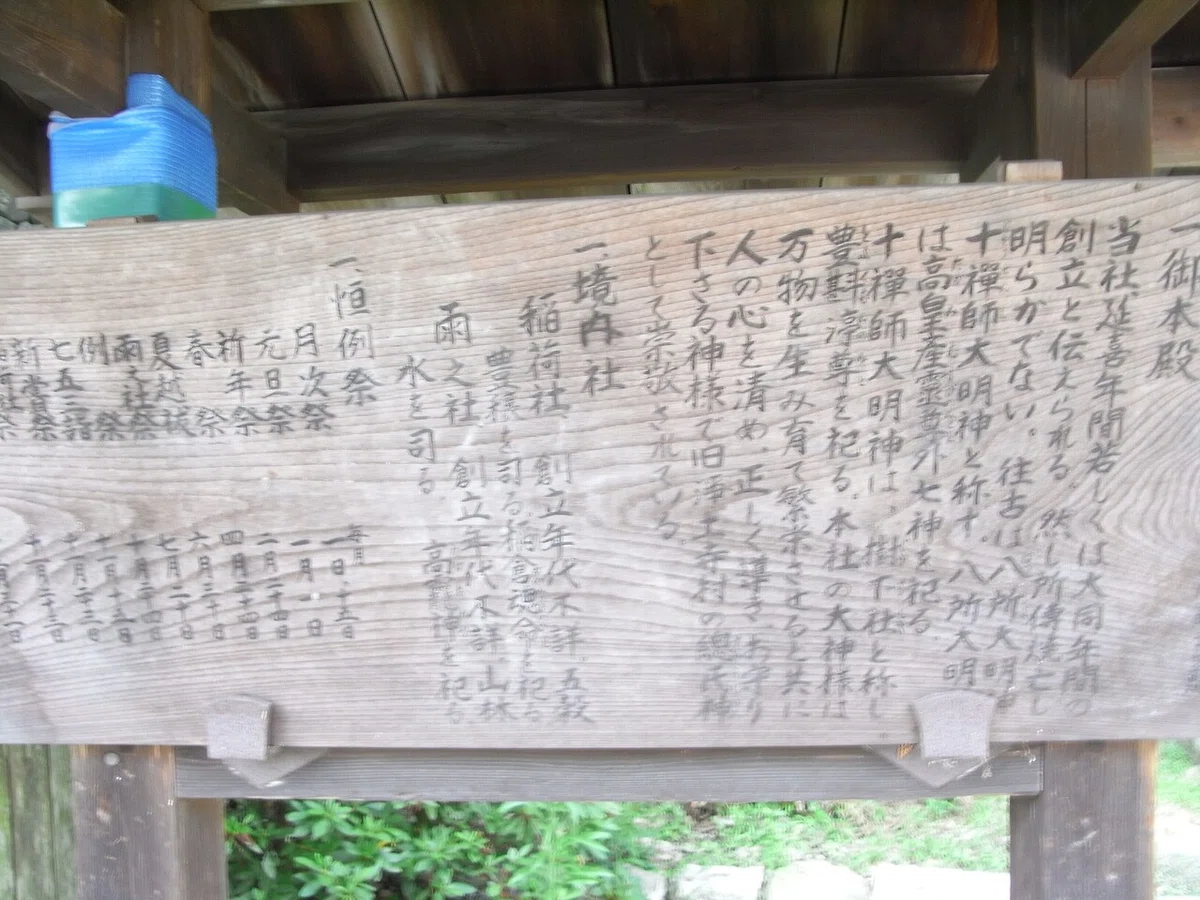 一、御本殿
当社延喜年間若しくは大同年間の
創立と伝えられる。然し所傳焼亡し
明らかでない。往古は八所大明神
十禪師大明神と称す。八所大明
は高皇産靈尊外七神を祀る。
十禪師大明神は、樹下社と称し
豊斟渟尊を祀る。本社の大神様は
万物を生み育て繁栄させると共に
人の心を清め、正しく導き、お守り
下さる神様で旧浄土寺村の總氏神
として崇敬されている。
一、境内社
稲荷社 創立年代不詳、五穀
豊穣を司る稲倉魂命を祀る
雨之社 創立年代不詳、山林
水を司る 高龗神を祀る
一、恒例祭
月次祭 毎月一日、十五日
元旦祭 一月一日
祈年祭 二月二十四日
春祭 四月二十四日
夏越祓 六月三十日
雨之社祭 七月二十日
例祭 十月二十四日
七五三詣 十一月十五日
新嘗祭 十一月二十三日